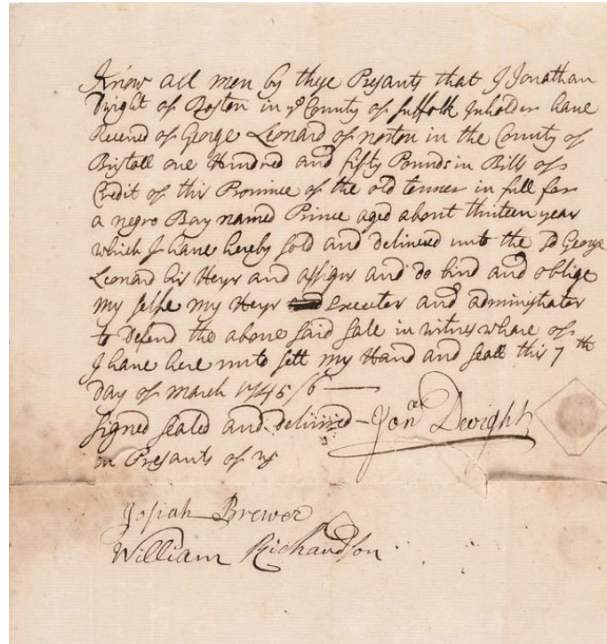 Know all men by these Presants that I Jonathan
Dwight of Boston in ye County of Suffolk Inholder have
Received of George Leonard of norton in the County of
Bristoll one Hundred and fifty Pounds in Bills of
Credit of this Province of the old tenner in full for
a negro Boy named Prince aged about thirteen year
which I have hereby sold and delivered unto the sd George
Leonard his Heyrs and assigns and do bind and oblige
my selfe my Heyrs Executer and administrator
to Defend the above said sale in witnes whare of
I have here unto sett my Hand and seall this 7th
day of march 1745/6
signed sealed and delivered — Jonath Dwight
in Presants of us
Josiah Brewer
William Richardson